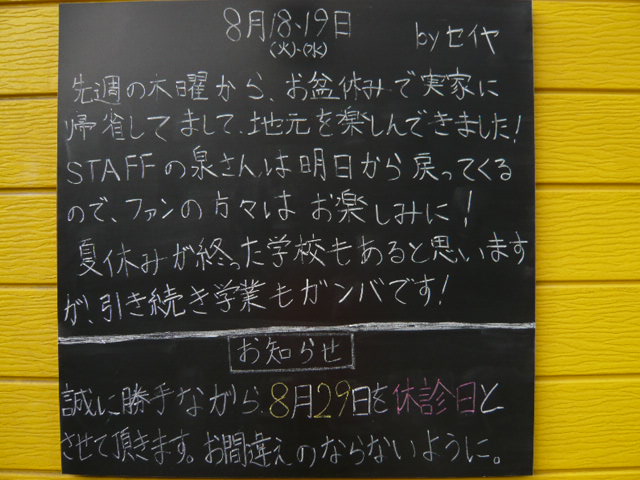 8月18、19日
(火)・(水)
byセイヤ
先週の木曜から、お盆休みで実家に
帰省してまして、地元を楽しんできました!
STAFFの泉さんは明日から戻ってくる
ので、ファンの方々はお楽しみに!
夏休みが終った学校もあると思います
が、引き続き学業もガンバです!
お知らせ
誠に勝手ながら、8月29日を休診日と
させて頂きます。お間違えのならないように。